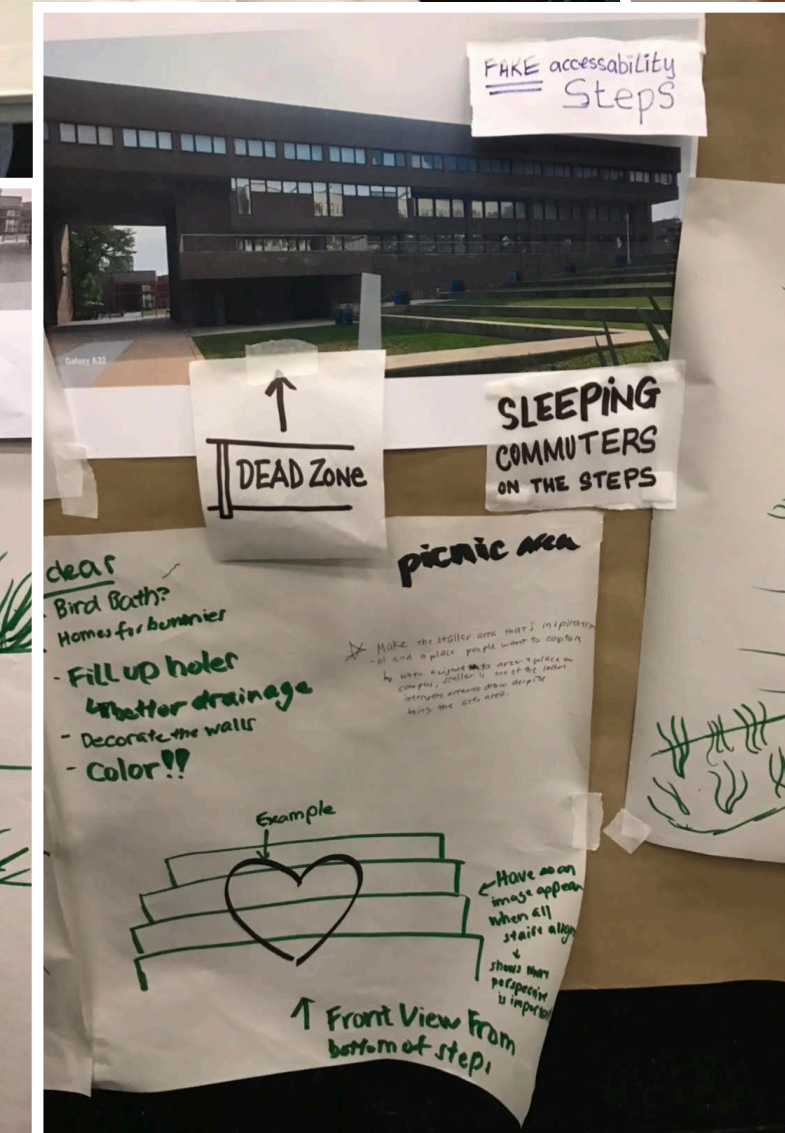 FAKE accessability
Steps
Galaxy A32
DEAD Zone
SLEEPING
COMMUTERS
ON THE STEPS
picnic area
clear
Bird Bath?
Homes for bunnies
- Fill up holes
better drainage
- Decorate the walls
- Color!!
Make the staller area that's inspiration
-al and a place people want to capture
when
campus, staller is one of the least
despite
being the arts area.
Example
Have an
image appear
when all
stairs align
shows that
perspective
is important
Front View From
bottom of steps